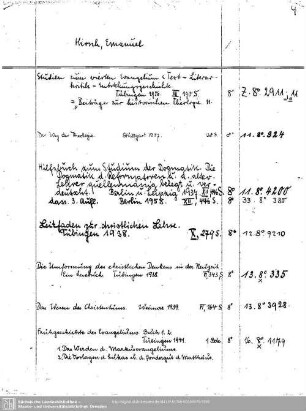 4
Hirsch, Emanuel
Studien zum vierten Evangelium (Text - Literar-
kritik - Entstehungsgeschichte
Tübingen 1936 S. 8° Z. 8° 2911, 11
= Beiträge zur historischen Theologie 11.
Der Weg der Theologie. Stuttgart 1937. 8° 11. 8° 824
Hilfsbuch zum Studium der Dogmatik. Die
Dogmatik d. Reformatoren u. d. alt-
Lehrer quellenmässig belegt u. ver-
deutscht. Berlin u. Leipzig 1937. S. 8° 11. 8° 4200
dass. 3. Aufl. Berlin 1958. XII, 446 S. 8° 33. 8° 385
Leitfaden zur christlichen Lehre.
Tübingen 1938. X, 279 S. 8° 12. 8° 9210
Die Umformung des christlichen Denkens in der Neuzeit.
Tübingen 1938. 8° 13. 8° 335
Das Wesen des Christentums. Weimar 1939. S. 8° 13. 8° 3928
Frühgeschichte des Evangeliums. Buch 1. 2.
Tübingen 1941 8° 16. 8° 1179
1. Das Werden d. Markusevangeliums
2. Die Vorlagen d. Lukas u. d. Sondergut d. Matthäus.